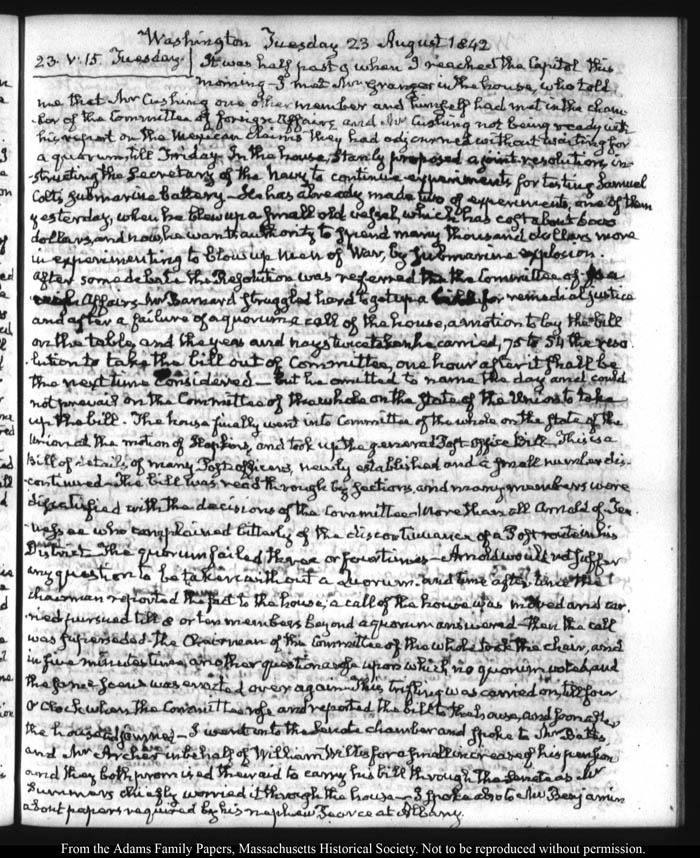 Washington Tuesday 23 August 1842
23. V:15. Tuesday. It was half past 9 when I reached the Capitol this
morning— I met Mr Granger in the house, who told
me that Mr Cushing one other member and himself had met in the cham-
-ber of the Committee of foreign Affairs, and Mr Cushing not being ready with
his report on the Mexican Claims they had adjourned without waiting for
a quorum, till Friday. In the house, Stanly proposed a joint resolution, in-
structing the Secretary of the Navy to continue experiments for testing Samuel
Colt's submarine battery— He has already made two of experiments, one of them
yesterday, when he blew up a small old vessel, which has cost about 6000
dollars, and now he wants authority to spend many thousand dollars more
in experimenting to blow up Men of War, by submarine explosion.
After some debate the Resolution was referred to the Committee of
Affairs. Mr Barnard struggled hard to get up a bill for remedial justice
and after a failure of a quorum, a call of the house, a motion to lay the bill
on the table, and the yeas and nays twice taken he carried, 75 to 54 the reso-
-lution to take the bill out of Committee, one hour after it shall be
the next time considered— but he omitted to name the day and could
not prevail on the Committee of the whole on the state of the Union to take
up the bill. The house finally went into Committee of the whole on the state of the
Union at the motion of Hopkins, and took up the general Post-Office bill. This is a
Bill of details, of many Post offices, newly established and a small number dis-
-continued— The bill was read through by sections, and many members were
dissatisfied with the decisions of the Committee— More than all Arnold of Ten-
-nessee who complained bitterly of the discontinuance of a Post route in his
District— The quorum failed three or four times— Arnold would not suffer
any question to be taken without a quorum. and time after time the
chairman reported the fact to the house, a call of the house was moved and car-
-ried pursued till 8 or ten members beyond a quorum answered— then the call
was superseded— the Chairman of the Committee of the whole took the chair, and
in five minutes time, another question arose upon which no quorum voted, and
the same scene was enacted over again— This trifling was carried on, till four
O'Clock when the Committee rose and reported the bill to the house, and soon after
the house adjourned— I went into the Senate chamber and spoke to Mr Bates
and Mr Archer in behalf of William Willis for a small increase of his pension
and they both promised their aid to carry his bill through the Senate as Mr
Summers chiefly worried it through the house— I spoke also to Mr Benjamin
about papers required by his nephew Pearce at Albany.
From the Adams Family Papers, Massachusetts Historical Society. Not to be reproduced without permission.